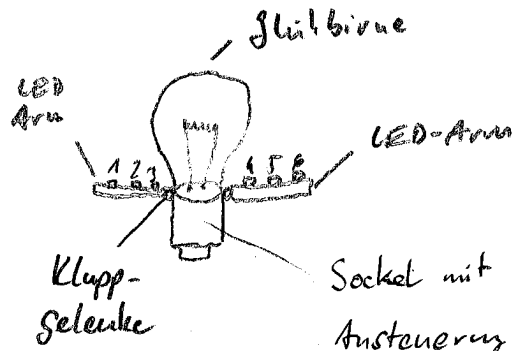 Glühbirne
LED
Arm
LED-Arm
1 2 3
4 5 6
Klapp-
gelenke
Sockel mit
Ansteuerung